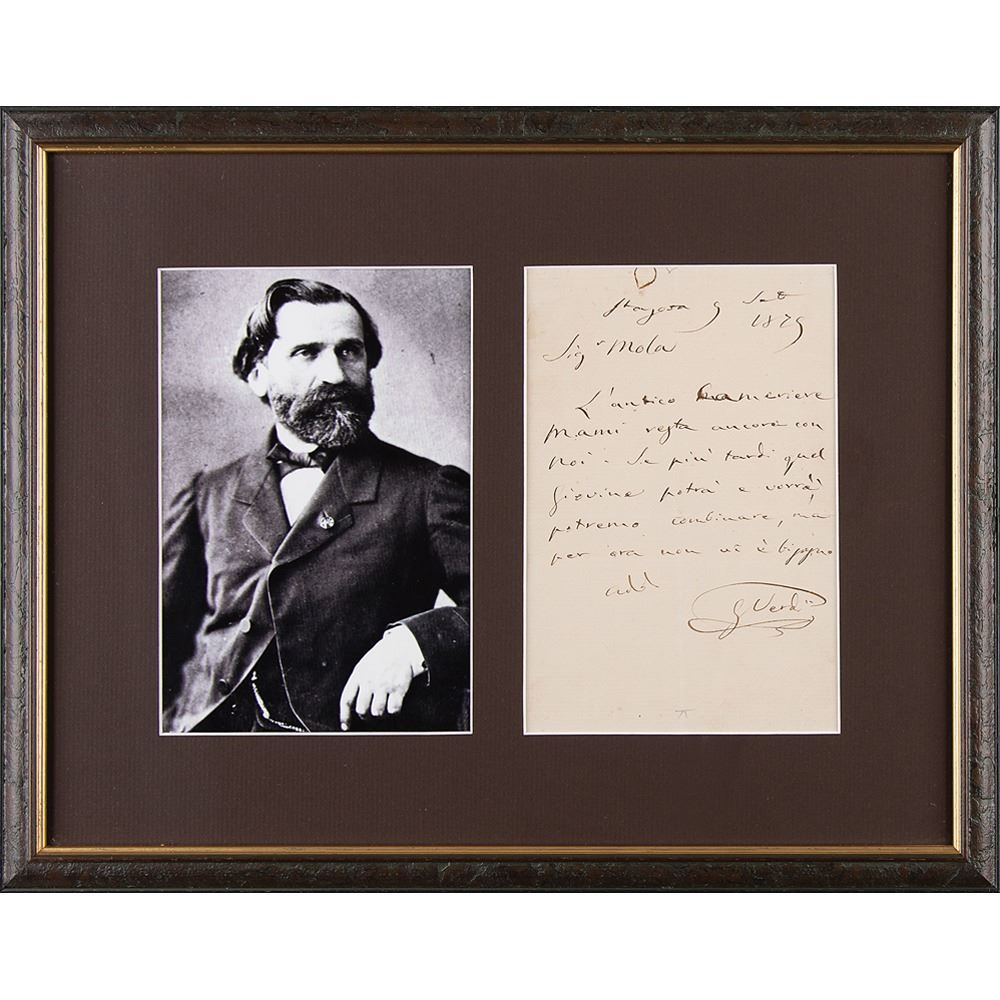 St Agata 9 Set
1879
Sigʳ Mola
L'antico Cameriere
Mami resta ancora con
noi. Se più tardi quel
Giovine potrà e vorrà
potremo combinare, ma
per ora non vi è bisogno
add
G Verdi